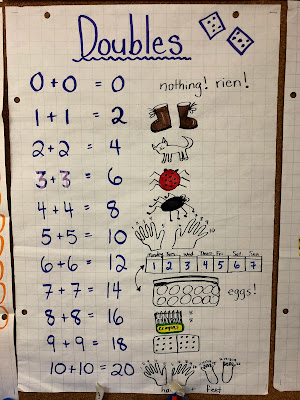 Doubles
0+0 = 0 nothing! rien!
1+1 = 2
2+2 = 4
3+3 = 6
4+4 = 8
5+5 = 10
6+6 = 12 1 2 3 4 5 6 7
7+7 = 14 eggs!
8+8 = 16 crayons
9+9 = 18
10+10 = 20 feet